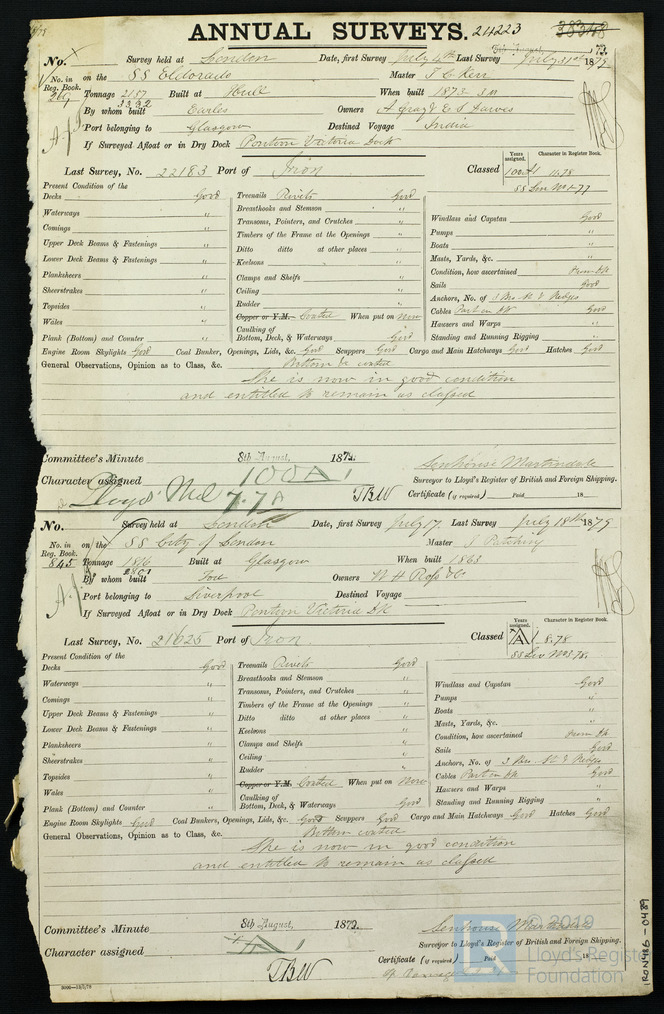 ANNUAL SURVEYS. 24223
No. Survey held at London Date, first Survey July 4th Last Survey July 31st 1879
No. in Reg. Book. on the SS Eldorado Master
269 Tonnage 2157 3332 Built at Hull When built 1873
By whom built Earles Owners
Port belonging to Glasgow Destined Voyage India
If Surveyed Afloat or in Dry Dock Pontoon Victoria Dock
Last Survey, No. 22183 Port of Iron Classed
Years assigned. Character in Register Book.
100A1 11.78
SS Lon No1-77
Present Condition of the
Decks Good Treenails Rivets Good
Waterways " Breasthooks and Stemson " Windlass and Capstan Good
Comings " Transoms, Pointers, and Crutches " Pumps "
Upper Deck Beams & Fastenings " Timbers of the Frame at the Openings " Boats "
Lower Deck Beams & Fastenings " Ditto ditto at other places " Masts, Yards, &c. "
Planksheers " Keelsons " Condition, how ascertained From Dk
Sheerstrakes " Clamps and Shelfs " Sails Good
Topsides " Ceiling " Anchors, No. of
Wales " Rudder " Cables Part on Dk Good
Copper or Y.M. Coated When put on Now Hawsers and Warps "
Plank (Bottom) and Counter " Caulking of Bottom, Deck, & Waterways Good Standing and Running Rigging "
Engine Room Skylights Good Coal Bunker, Openings, Lids, &c. Good Scuppers Good Cargo and Main Hatchways Good Hatches Good
General Observations, Opinion as to Class, &c. Bottom coated
She is now in good condition
and entitled to remain as classed
Committee's Minute 8th August, 1879.
Senhouse Martindale
Character assigned 100A1
Surveyor to Lloyd's Register of British and Foreign Shipping.
Lloyds' Mcl 7.79 TBW Certificate (if required) Paid 18
No. Survey held at London Date, first Survey July 17. Last Survey July 18th 1879
No. in Reg. Book. on the SS City of London Master
845 Tonnage Built at Glasgow When built 1863
By whom built Tod Owners W H Ross & Co
Port belonging to Liverpool Destined Voyage
If Surveyed Afloat or in Dry Dock Pontoon Victoria Dk
Last Survey, No. 21625 Port of Iron Classed
Years assigned. Character in Register Book.
A1 8.78
Present Condition of the
Decks Good Treenails Rivets Good
Waterways " Breasthooks and Stemson " Windlass and Capstan Good
Comings " Transoms, Pointers, and Crutches " Pumps "
Upper Deck Beams & Fastenings " Timbers of the Frame at the Openings " Boats "
Lower Deck Beams & Fastenings " Ditto ditto at other places " Masts, Yards, &c. "
Planksheers " Keelsons " Condition, how ascertained From Dk
Sheerstrakes " Clamps and Shelfs " Sails Good
Topsides " Ceiling " Anchors, No. of
Wales " Rudder " Cables Part on Dk Good
Copper or Y.M. Coated When put on Now Hawsers and Warps "
Plank (Bottom) and Counter " Caulking of Bottom, Deck, & Waterways Good Standing and Running Rigging "
Engine Room Skylights Good Coal Bunkers, Openings, Lids, &c. Good Scuppers Good Cargo and Main Hatchways Good Hatches Good
General Observations, Opinion as to Class, &c. Bottom coated
She is now in good condition
and entitled to remain as classed
Committee's Minute 8th August, 1879.
Senhouse Martindale
Character assigned A1
Surveyor to Lloyd's Register of British and Foreign Shipping.
TBW Certificate (if required) Paid 18
© 2019
Lloyd's Register
Foundation
IRON486-0489